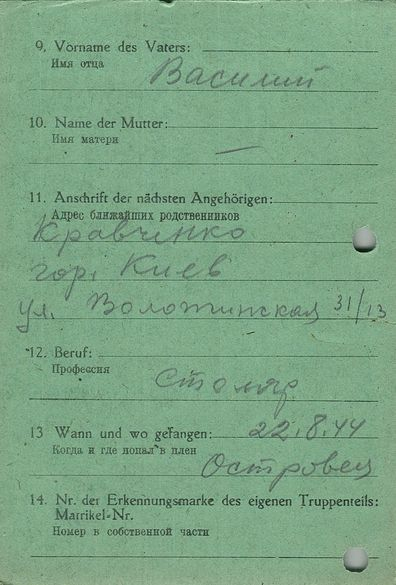 9. Vorname des Vaters:
Имя отца
Василий
10. Name der Mutter:
Имя матери
—
11. Anschrift der nächsten Angehörigen:
Адрес ближайших родственников
Кравченко
гор. Киев
ул. Воложинская 31/13
12. Beruf:
Профессия
Столяр
13 Wann und wo gefangen:
22.8.44
Когда и где попал в плен
Островец
14. Nr. der Erkennungsmarke des eigenen Truppenteils:
Matrikel-Nr.
Номер в собственной части